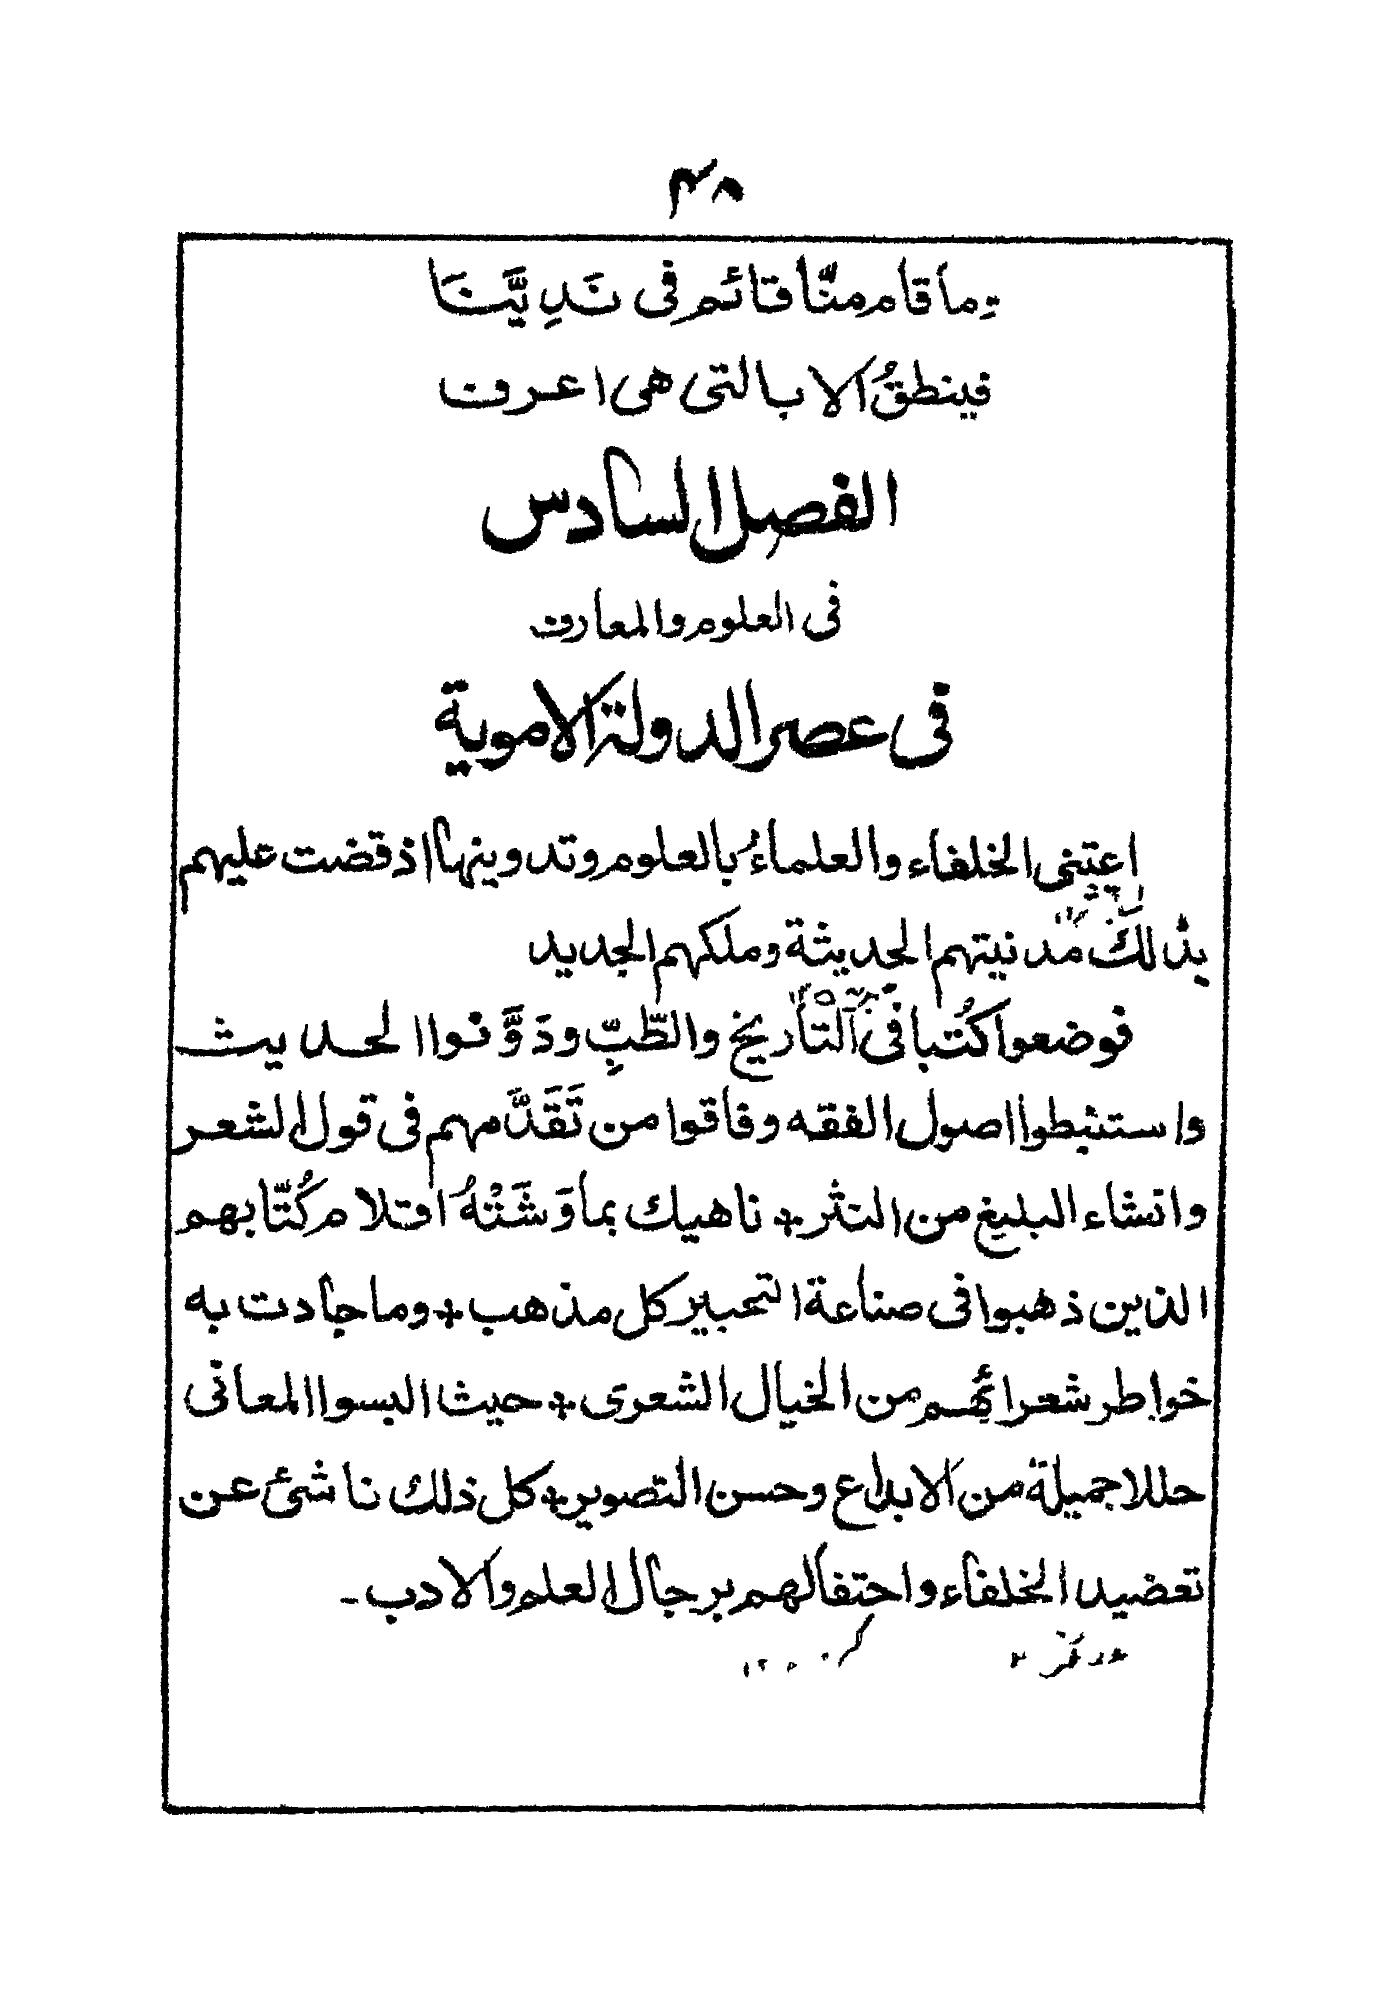 ٤٨
وما قام منّا قائم فی نَدِیَّنَا
فینطقُ الا بالتی هی اعرف
الفصل السادس
فی العلوم والمعارف
فی عصر الدولة الاموية
اعتنی الخلفاء والعلماءُ بالعلوم وتدوینها اذ قضت علیهم
بذلك مدنیتهم الحدیثة وملکهم الجدید
فوضعوا کُتبا فی التاریخ والطّبِّ ودَوَّنوا الحدیث
واستنبطوا اصول الفقه وفاقوا من تَقَدَّمهم فی قول الشعر
وانشاء البلیغ من النثر + ناهیك بما وَشَتْهُ اقلام کُتّابهم
الذین ذهبوا فی صناعة التحبیر کل مذهب + وما جادت به
خواطر شعرائهم من الخیال الشعری + حیث البسوا المعانی
حللا جمیلة من الابداع وحسن التصویر + کل ذلك ناشئ عن
تعضید الخلفاء واحتفالهم برجال العلم والادب -